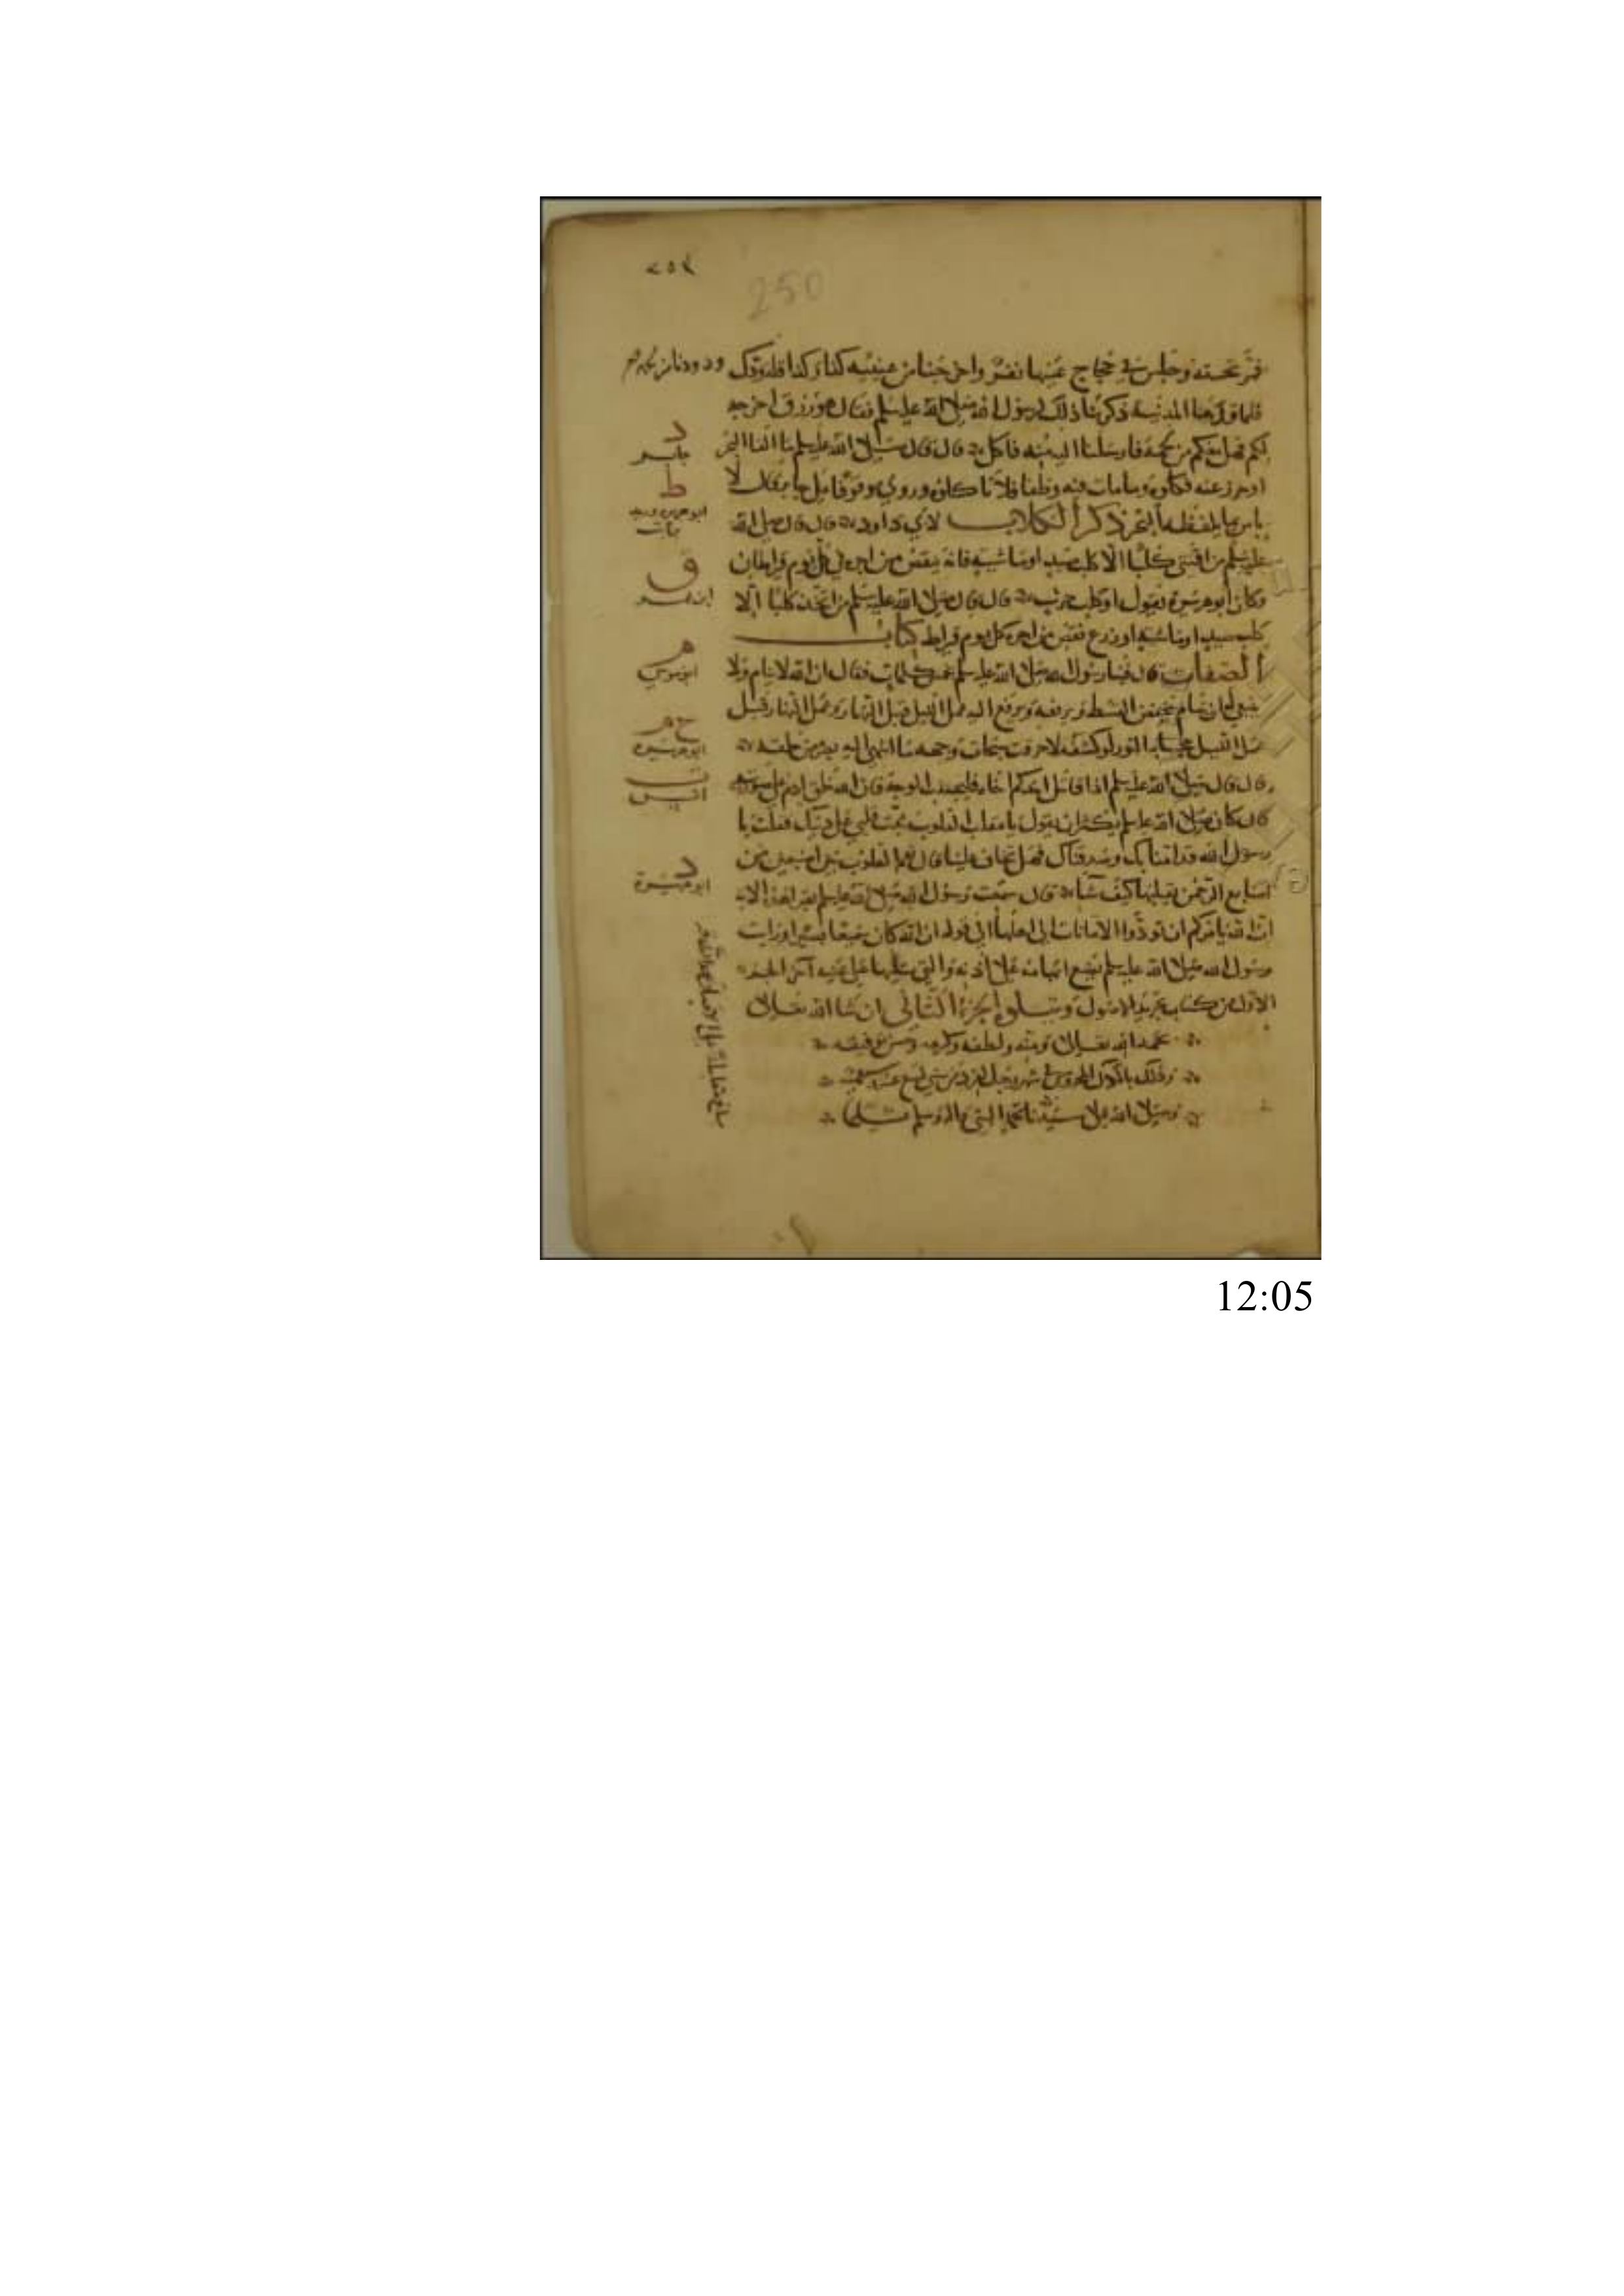 ٢٥٢
250
فمر تحته وجلس في حجاج عينها نفر واخرجنا من عينيه كذا وكذا قلة ودك
فلما قدمنا المدينة ذكرنا ذلك لرسول الله صلى الله عليه وسلم فقال هو رزق اخرجه
لكم فهل معكم من لحمه فارسلنا اليه منه فاكل قال قال صلى الله عليه وسلم ما القا البحر
او جزر عنه فكلوه وما مات فيه وطفا فلا تاكلوه وروي موقوفا على جابر فقال لا
باس بما يلفظه البحر ذكر الكلاب لابي داود قال قال صلى الله
عليه وسلم من اقتنى كلبا الا كلب صيد او ماشية فانه ينقص من اجره في كل يوم قيراطان
وكان ابو هريرة يقول او كلب حرث قال قال صلى الله عليه وسلم من اتخذ كلبا الا
كلب صيد او ماشية او زرع نقص من اجره كل يوم قيراط كتاب
الصفات قال قام فينا رسول الله صلى الله عليه وسلم بخمس كلمات فقال ان الله لا ينام ولا
ينبغي له ان ينام يخفض القسط ويرفعه ويرفع اليه عمل الليل قبل النهار وعمل النهار قبل
عمل الليل حجابه النور لو كشفه لاحرقت سبحات وجهه ما انتهى اليه بصره من خلقه
قال قال صلى الله عليه وسلم اذا قاتل احدكم اخاه فليجتنب الوجه فان الله خلق ادم على صورته
قال كان صلى الله عليه وسلم يكثر ان يقول يا مقلب القلوب ثبت قلبي على دينك فقلت يا
رسول الله قد امنا بك وصدقناك فهل تخاف علينا قال نعم القلوب بين اصبعين من
اصابع الرحمن يقلبها كيف شاء قال سمعت رسول الله صلى الله عليه وسلم يقرا هذه الاية
ان الله يامركم ان تودوا الامانات الى اهلها الى قوله ان الله كان سميعا بصيرا ورايت
رسول الله صلى الله عليه وسلم يضع ابهامه على اذنه والتي تليها على عينه اخر الجزء
الاول من كتاب تجريد الاصول ويتلوه الجزء الثاني ان شا الله تعالى
بحمد الله تعالى ومنه ولطفه وكرمه وحسن توفيقه
وصلى الله على سيدنا محمد النبي واله وسلم تسليما
د
جابر
ط
ابو هريرة وزيد
ثابت
ق
ابن عمر
م
ابو موسى
خ م
ابو هريرة
ت
انس
د
ابو هريرة
12:05